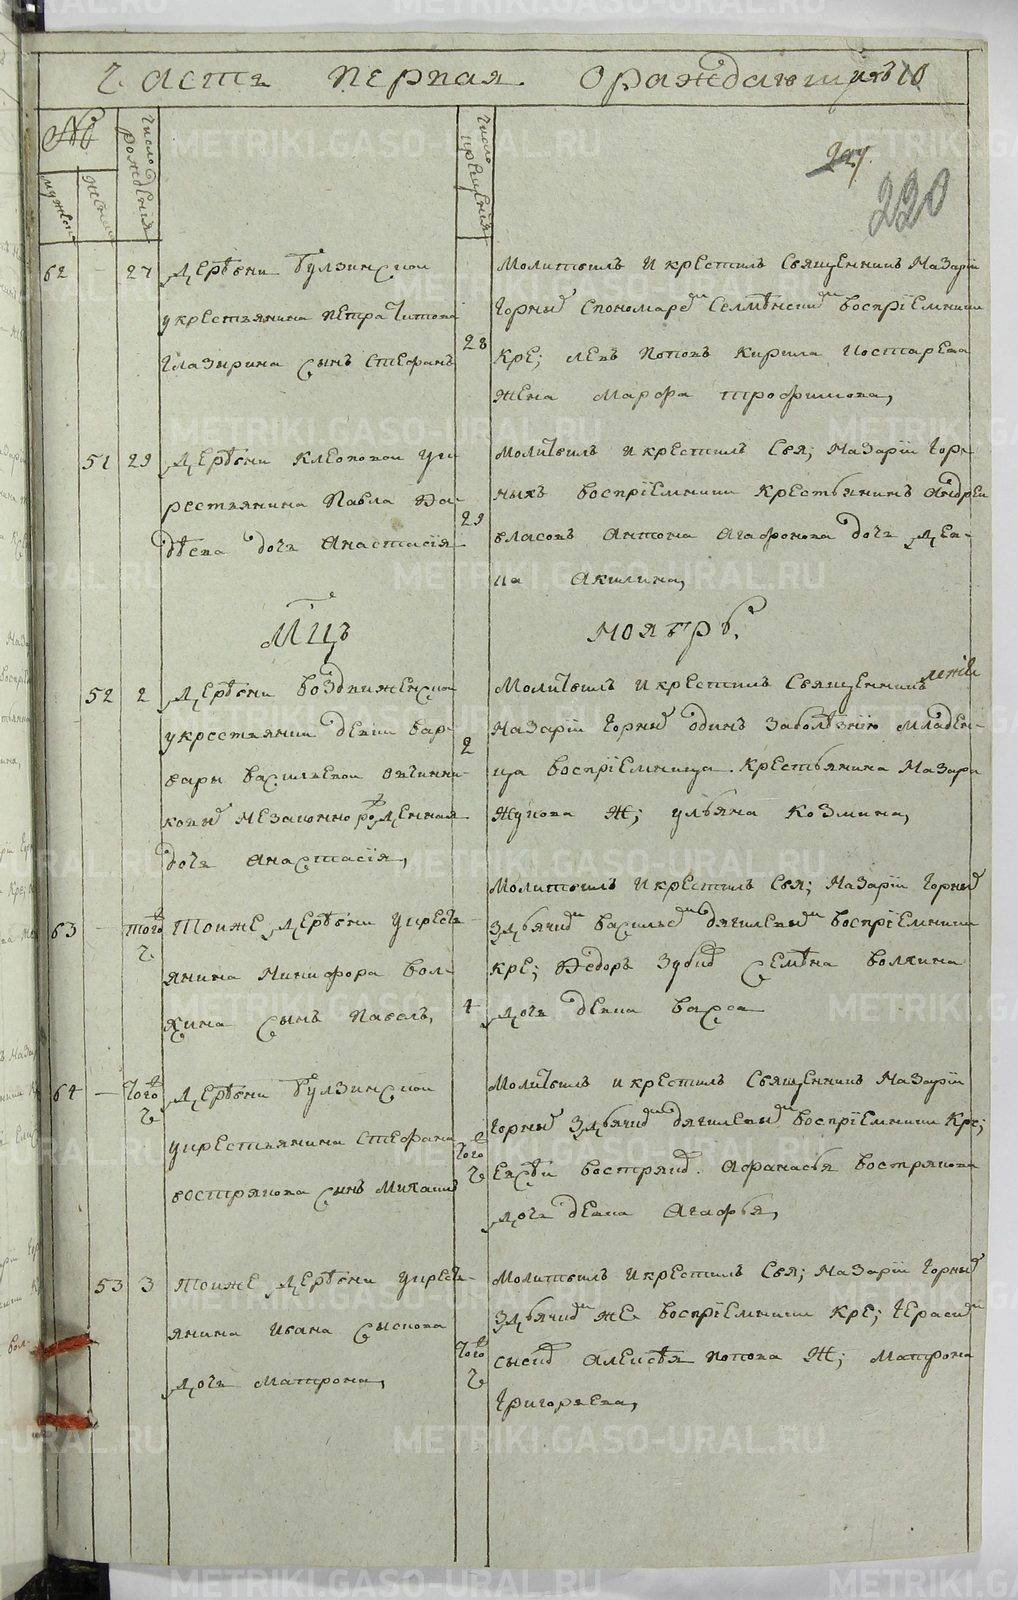 METRIKI.GASO-URAL.RU
Часть первая ораждающихъ 10
№
мужеск
женск
число рожденiя
число крещенiя
227.
220
62 — 27
деревни Булзинской
укрестьянина Петра Титова
Глазырина сынъ Стефанъ
28
Молитвилъ икрестилъ священникъ Назарiй
Горныхъ спономаремъ восприемники
Кре; Левъ Поповъ Кирила Костарева
жена Марфа Трофимова,
51 29
деревни Клеопиной укр
рестьянина Павла
дочь Анастасiя
29
Молитвилъ икрестилъ свя; Назарiй Гор-
ныхъ воспрiемники крестьянинъ Андрей
власовъ Антона Агафонова дочь деви-
ца Акилина,
Мцъ ноябрь.
52 2
деревни Воздвиженской
укрестьянки девки Вар-
вары Васильевой Овчинни-
ковыхъ незаконно рожденная
дочь Анастасiя,
2
Молитвилъ икрестилъ священникъ
Назарiй Горныхъ одинъ заболѣзнiю младен-
ца воспрiемница. крестьянина Назара
Жукова Ж; ульяна Козмина,
63 — того ч
тоиже деревни укресть-
янина Никифора Вол-
кина сынъ Павелъ,
4
Молитвилъ икрестилъ свя; Назарiй Горныхъ
здьячкомъ васильемъ дягилевымъ воспрiемники
кре; Федоръ Зубовъ Семена волкина
дочь девка васса
64 — того ч
деревни Булзинской
укрестьянина Стефана
вострякова сынъ Михаилъ
того ч
Молитвилъ икрестилъ священникъ Назарiй
Горныхъ здьячкомъ дягилевымъ воспрiемники кре;
Евсѣй востряковъ. Афанасья вострякова
дочь девка Агафья,
53 3
тоиже деревни укресть-
янина Ивана Сыскова
дочь Матрона,
того ч
Молитвилъ икрестилъ свя; Назарiй Горныхъ
здьячкомъ же воспрiемники кре; Герасимъ
сысковъ Алексѣя Попова Ж; Матрона
Григорьева,